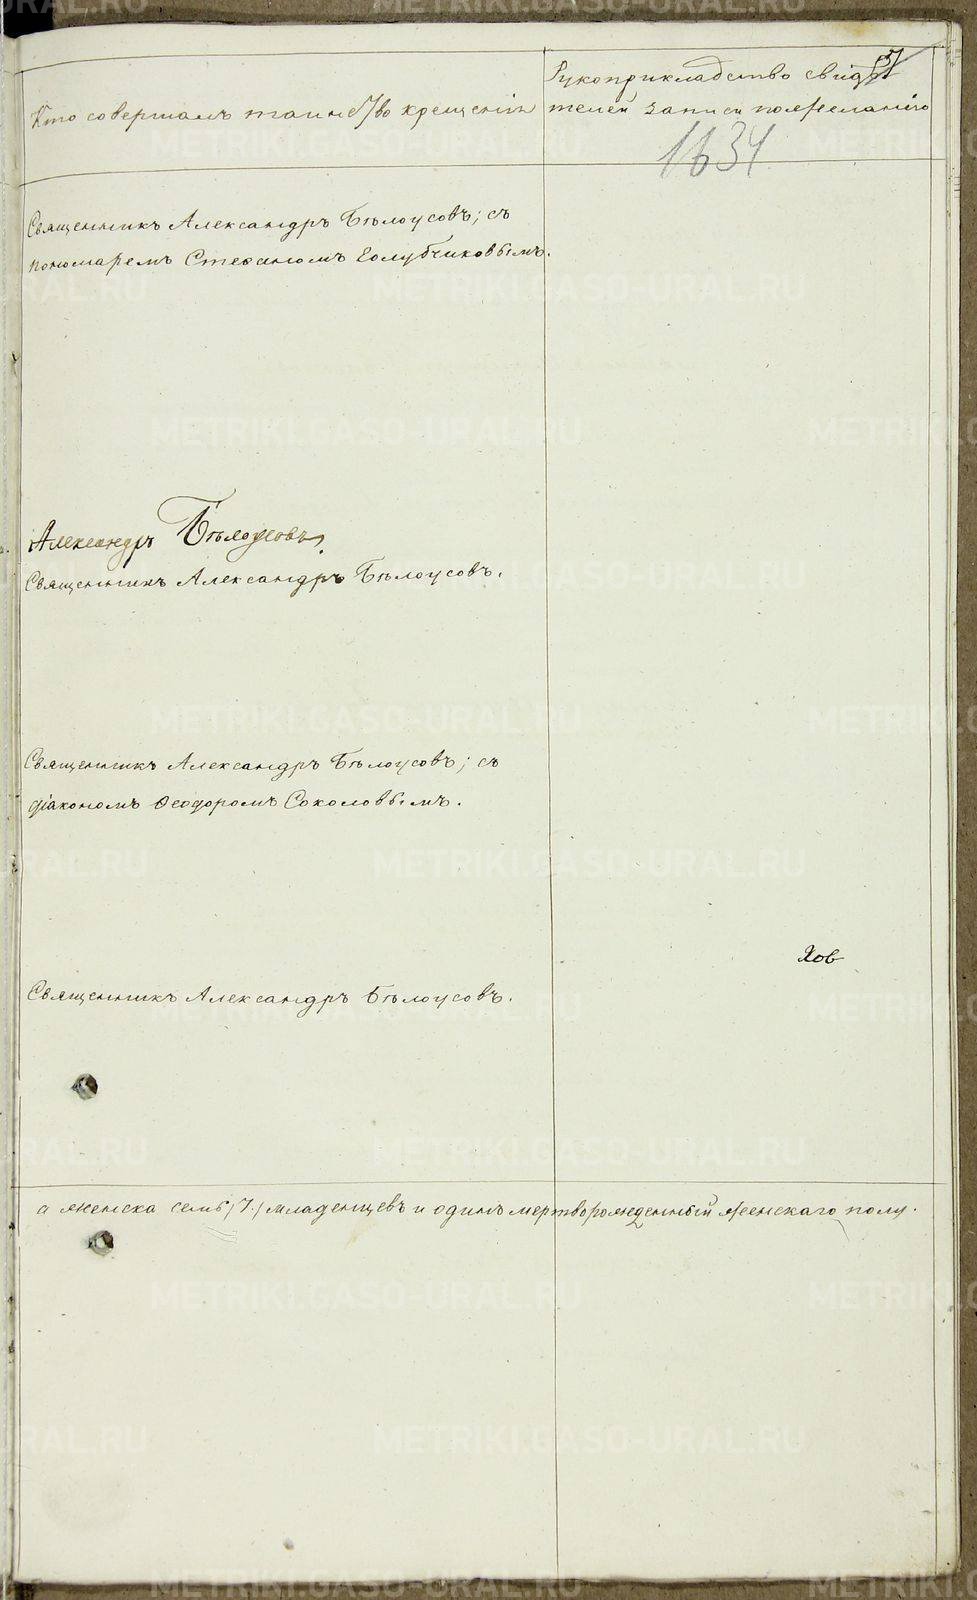 Кто совершалъ таинство крещенія
Рукоприкладство свидѣ
телей записи по желанію
1634
Священникъ Александръ Бѣлоусовъ; съ
пономаремъ Стефаномъ Голубчиковымъ.
Александръ Бѣлоусовъ.
Священникъ Александръ Бѣлоусовъ.
Священникъ Александръ Бѣлоусовъ; съ
діакономъ Ѳеодоромъ Соколовымъ.
Хов
Священникъ Александръ Бѣлоусовъ.
а женска семь /7./ младенцевъ и одинъ мертворожденный женскаго полу.
METRIKI.GASO-URAL.RU